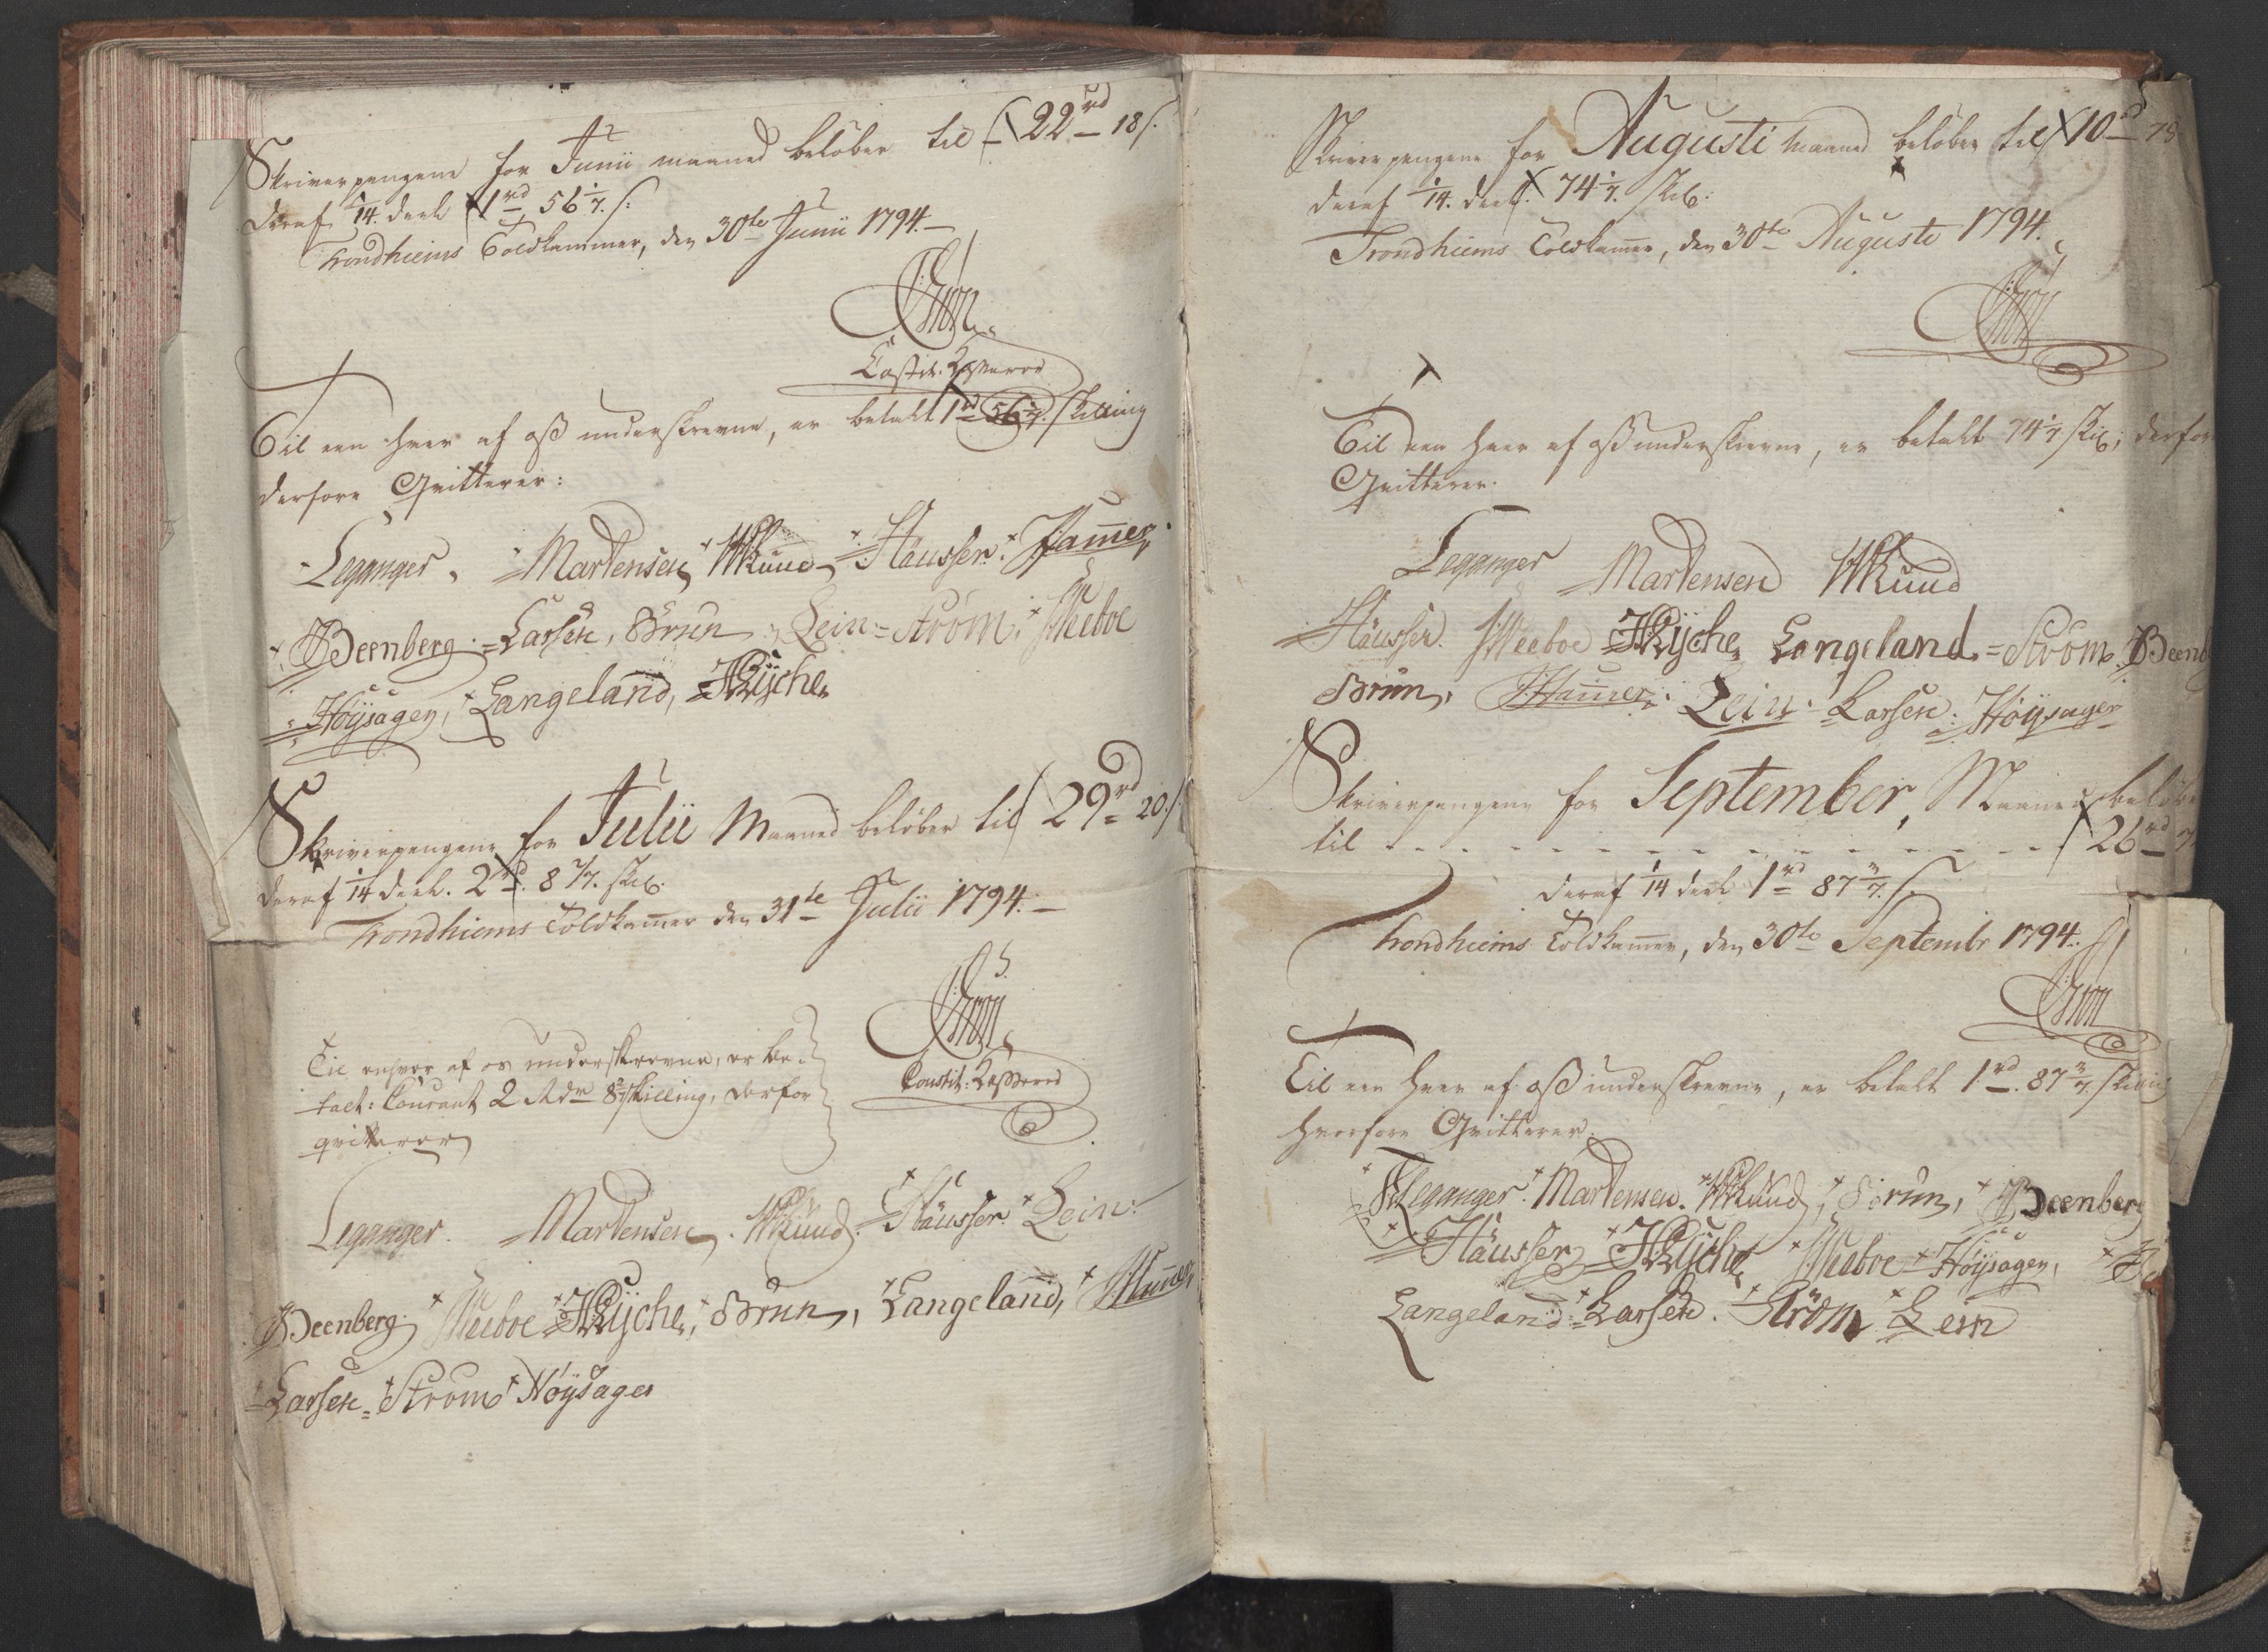 Skriverpengene for Junii maaned beløber til 22 rd 18 s.
deraf 1/14. deel 1 rd 56 1/7. s:
Trondhiems Toldkammer, den 30te Junii 1794.
Constit. Kasserer
Til een hver af oss underskrevne, er betalt 1 rd 56 1/7. skilling
derfore Qvitterer:
Leganger. Martensen WKund Häusser. Hamer,
Beenberg. Larsen, Brun Lein Strøm, Meeboe
Höysager, Langeland, HRÿche
Skriverpengene for Julii Maaned beløber til 29 rd 20 s
deraf 1/14 deel. 2 rd. 8 4/7. skil.
Trondhiems Toldkamer den 31te Julii 1794.
Til enhver af os underskrevne, er be-
talt: Courant 2 Rdr 8 skilling, derfor
qviterer
Constit: Kasserer
Leganger. Martensen. WKund. Häusser. Lein.
Beenberg. Meeboe HRÿche, Brun, Langeland,
Larsen Strøm Höysager
Skriverpengene for Augusti maaned beløber til 10 rd 78
deraf 1/14. deel. 74 1/7. skil:
Trondhiems Toldkamer, den 30te Augusti 1794.
Til een hver af oss underskrevne, er betalt 74 1/7 skil; derfor
Qvitterer.
Leganger Martensen WKund
Häusser. Meeboe HRÿche, Langeland. Strøm. Beenb
Brun, Hamer. Lein. Larsen. Höysager
Skriverpengene for September, Maaned beløbe
til - - - - - - - - - - - - - - - 26 rd
deraf 1/14 deel 1 rd 87 3/7. s.
Trondhiems Toldkamer, den 30te Septembr 1794.
Til een hver af oss underskrevne, er betalt 1 rd. 87 3/7. skilling
hvorfore Qvitterer.
Leganger. Martensen. WKund, Brun, Beenberg
Häusser HRÿche Meeboe Höysager,
Langeland. Larsen. Strøm Lein